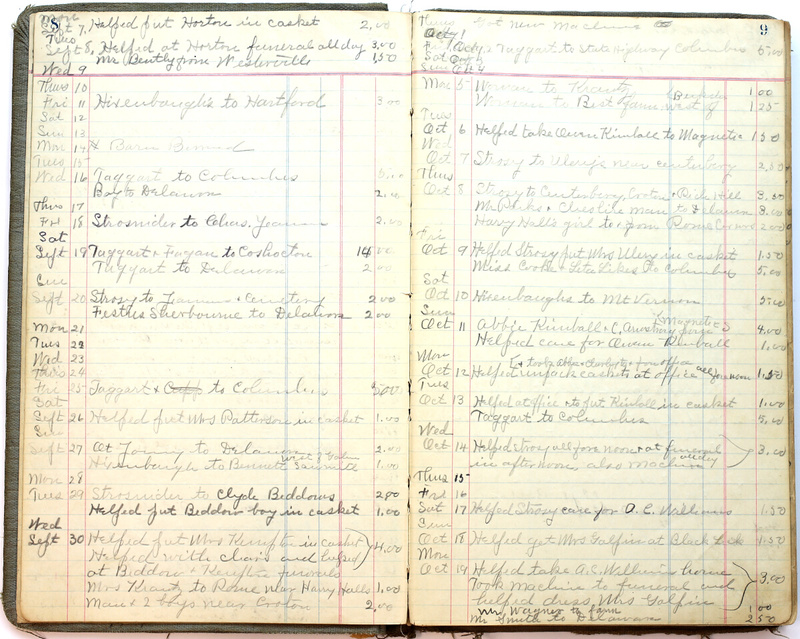 8
Mon
Sept 7, Helped put Horton in casket 2.00
Tues
Sept 8, Helped at Horton funeral all day 3.00
Mr Bently from Westerville 1.50
Wed 9
Thurs 10
Fri 11 Hixenbaughs to Hartford 3.00
Sat 12
Sun 13
Mon 14 Barn Burned
Tues 15
Wed 16 Taggart to Columbus 5.00
Boy to Delawon 2.00
Thurs 17
Fri 18 Strosnider to 2.00
Sat
Sept 19 Taggart + Fagan to Coshocton 14.00
Taggart to Delawon 2.00
Sun
Sept 20 Strosy to + Cemetery 2.00
Festus Sherbourne to Delawon 2.00
Mon 21
Tues 22
Wed 23
Thurs 24
Fri 25 Taggart + to Columbus 5.00
Sat
Sept 26 Helped put Mrs Patterson in casket 1.00
Sun
Sept 27 to Delawon 2.00
Hixenbaugh to Bennett Sawmill 1.00
Mon 28
Tues 29 Strosnider to Clyde Beddows 2.00
Helped put Beddow boy in casket 1.00
Wed
Sept 30 Helped put Mrs in casket
Helped with chairs and helped
at Beddow + funerals 4.00
Mrs to Rome near Harry Halls 1.00
Man + 2 boys near Croton 2.00
9
Thurs
Oct 1 Got New Machine
Fri Oct 2 Taggart to State Highway Columbus 5.00
Sat Oct 3
Sun Oct 4
Mon 5 Woman to 1.00
Woman to Best farm west of 1.25
Tues
Oct 6 Helped take Owen Kimball to Magnetic 1.50
Wed
Oct 7 Strosy to Ulery's near Centerburg 2.50
Thurs
Oct 8 Strosy to Centerburg, Croton + Rich Hill 3.50
Mr + man to Delawon 3.00
Harry Hall's girl to + from Rome Corners 2.00
Fri
Oct 9 Helped Strosy put Mrs Ulery in casket 1.50
Miss Cooke + Likes to Columbus 5.00
Sat
Oct 10 Hixenbaughs to Mt Vernon 5.00
Sun
Oct 11 Abbie Kimball + C. to Magnetic S 4.00
Helped care for Owen Kimball 1.00
Mon
+ took Abbie + Charlotte + from office
Oct 12 Helped unpack caskets at office all forenoon 1.50
Tues
Oct 13 Helped at office + to put Kimball in casket 1.00
Taggart to Columbus 5.00
Wed
Oct 14 Helped Strosy all fore noon + at funeral
in afternoon, also Machine all day 3.00
Thurs 15
Frid 16
Sat 17 Helped Strosy care for A. C. Williams 1.50
Sun
Oct 18 Helped get Mrs Galpin at Black Lick 1.50
Mon
Oct 19 Helped take A.C. Williams home
Took Machine to funeral and
helped dress Mrs Galpin 3.00
Mrs Wagner to farm 1.00
Mr Smith to Delawon 2.50